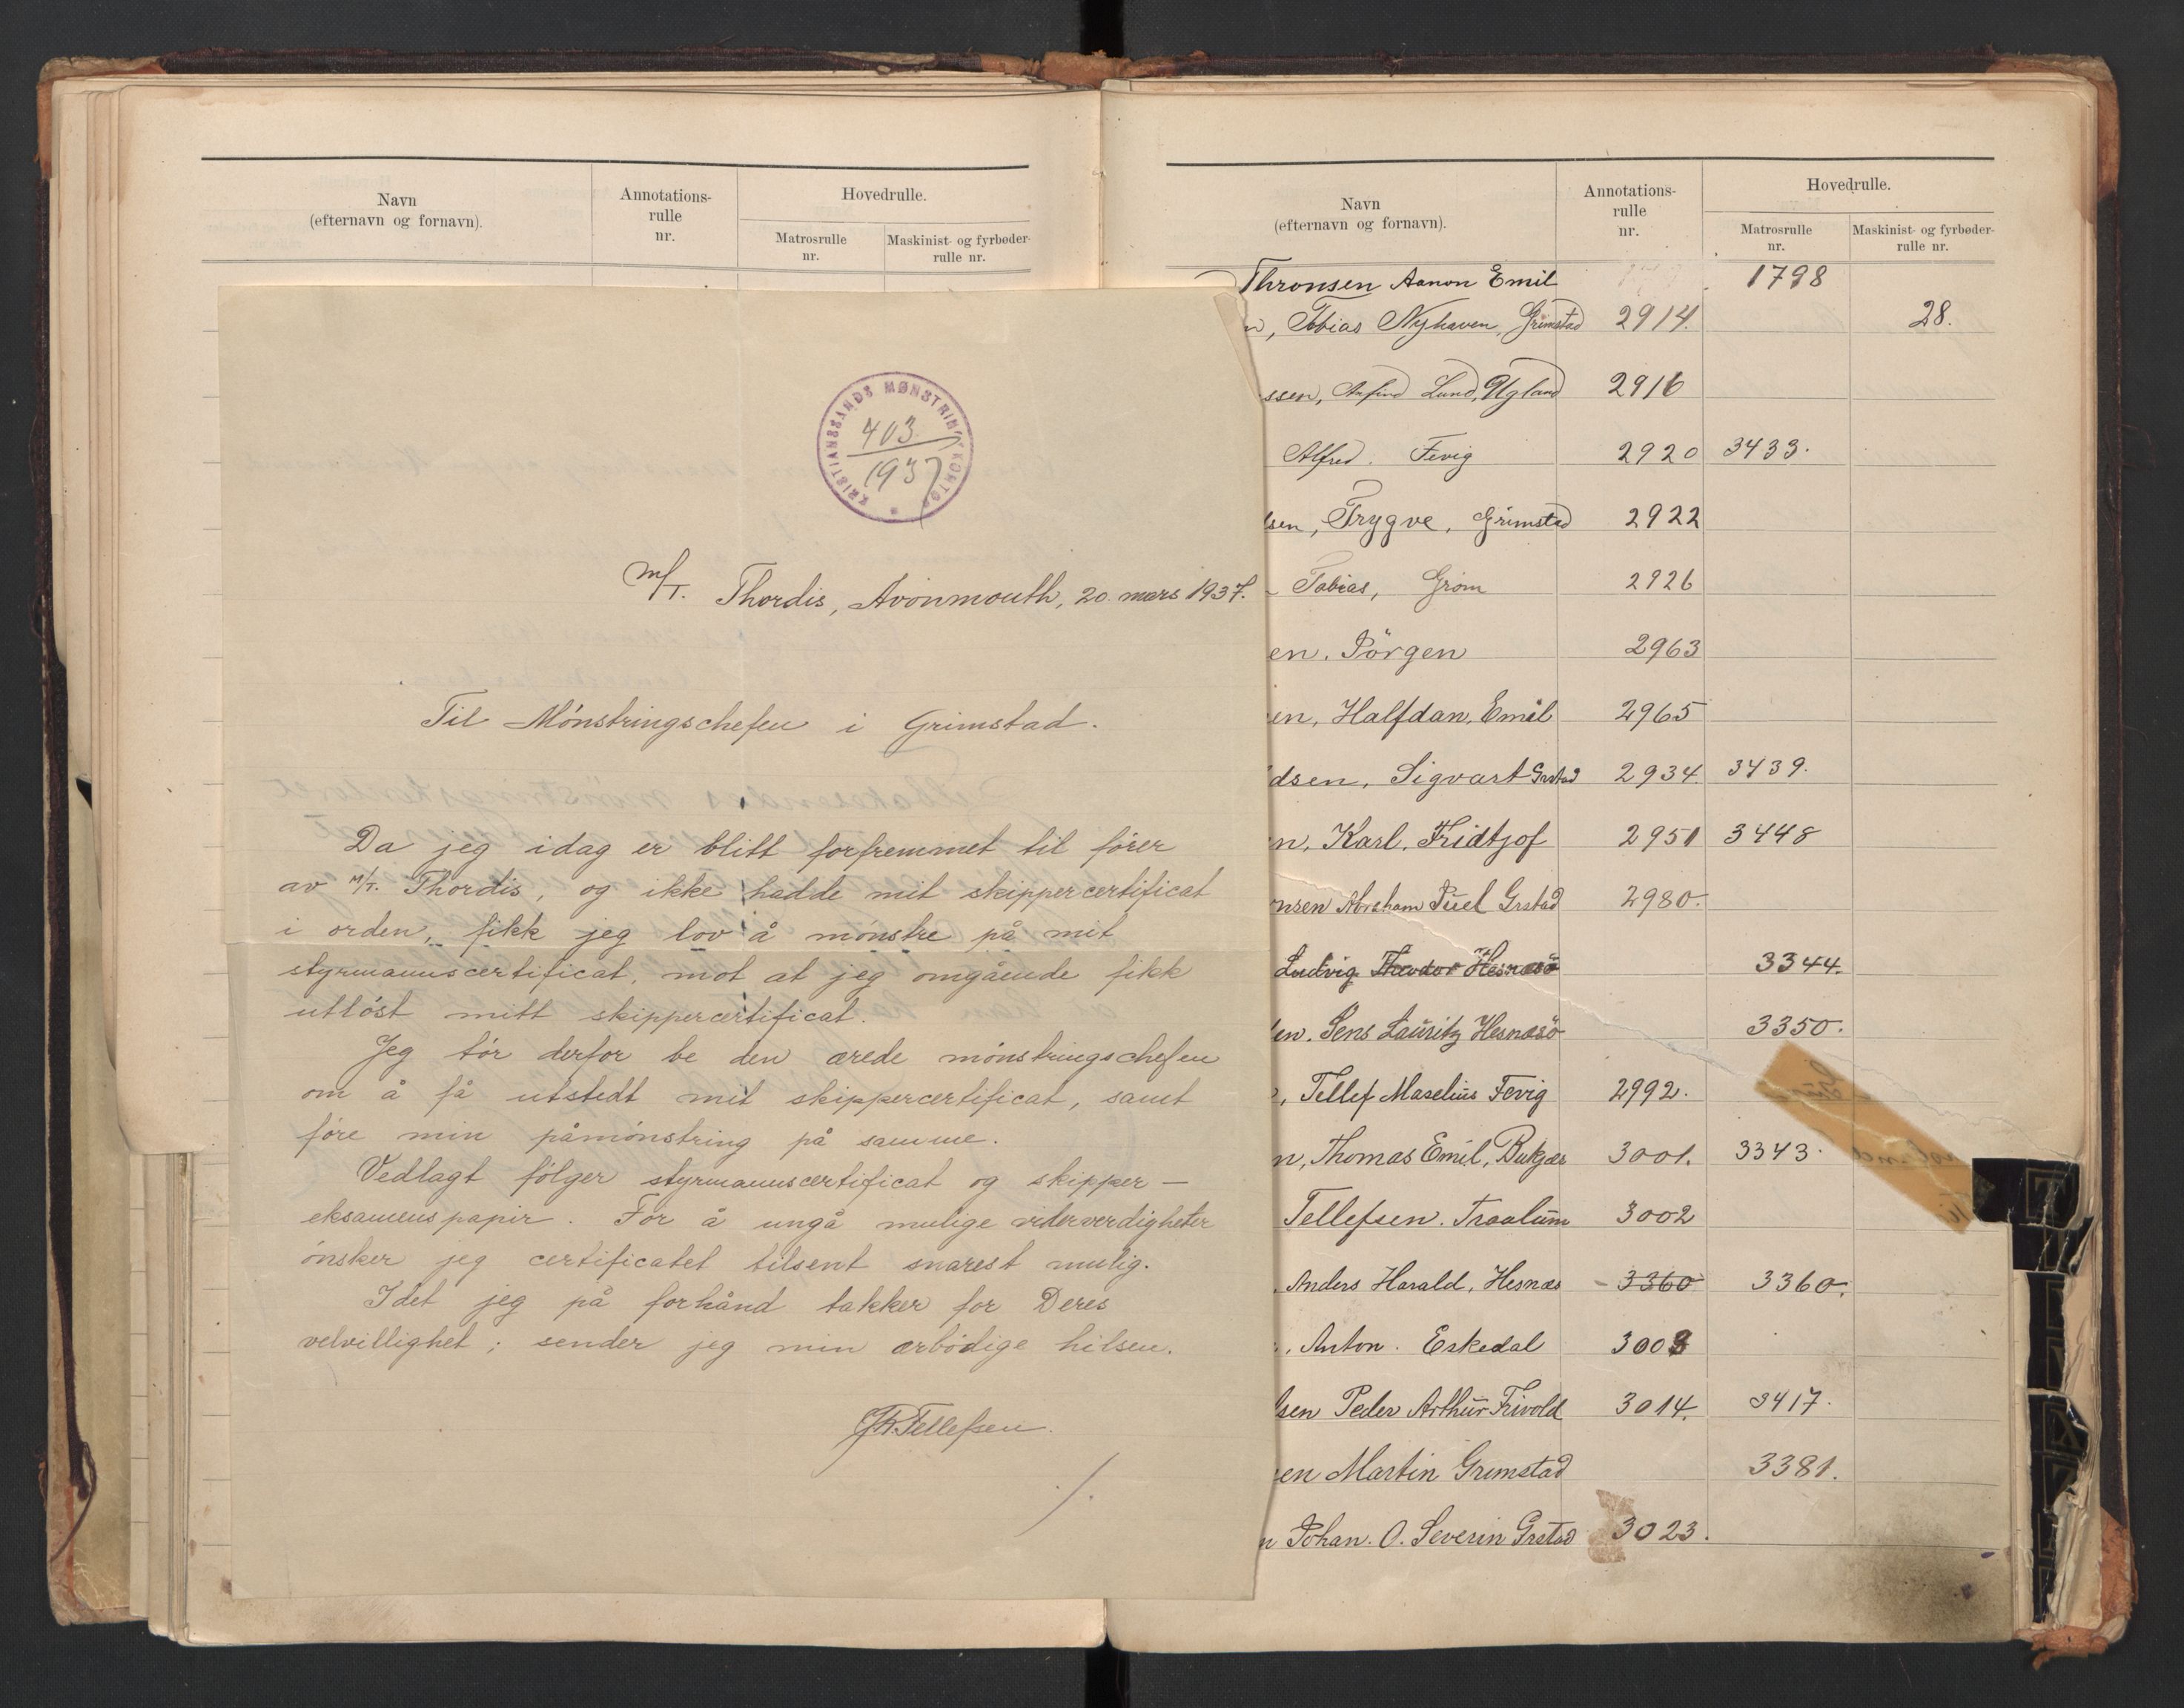 Navn
(efternavn og fornavn).
Annotations-
rulle
nr.
Hovedrulle.
Matrosrulle
nr.
Maskinist- og fyrbøder-
rulle nr.
KRISTIANSSANDS MØNSTRIN KONTOR
403
1937
M/T. Thordis, Avonmouth, 20. mars 1937.
Til Mönstringschefen i Grimstad.
Da jeg idag er blitt forfremmet til förer
av M/T. Thordis, og ikke hadde mit skippercertificat
i orden, fikk jeg lov å mönstre på mit
styrmannscertificat, mot at jeg omgående fikk
utlöst mitt skippercertificat.
Jeg tör derfor be den ærede mönstringschefen
om å få utstedt mit skippercertificat, samt
före min påmönstring på samme.
Vedlagt fölger styrmannscertificat og skipper-
eksamenspapir. For å ungå mulige viderverdigheter
önsker jeg certificatet tilsent snarest mulig.
Idet jeg på forhånd takker for Deres
velvillighet; sender jeg min ærbödige hilsen.
Th. Tellefsen.
Navn
(efternavn og fornavn).
Annotations-
rulle
nr.
Hovedrulle.
Matrosrulle
nr.
Maskinist- og fyrbøder-
rulle nr.
Thronsen Aanon Emil 1798
n, Tobias Nyhaven, Grimstad 2914. 28.
ssen, Lund, Ugland 2916
Alfred. Fevig 2920 3433.
lsen, Trygve, Grimstad 2922
Tobias, Grom 2926
en. Jörgen 2963
en, Halfdan, Emil 2965
dsen, Sigvart Grstad 2934. 3439.
n, Karl. Fridtjof 2951 3448
nsen Abraham Juel Grstad 2980.
Ludvig Theodor Hesnæsö 3344.
en. Jens Lauritz Hesnæsö 3350.
, Tellef Maselius Fevig 2992.
n, Thomas Emil, Bukjær 3001. 3343.
Tellefsen. Traalum 3002
Anders Harald, Hesnæs 3360 3360.
Anton. Eskedal 3003
lsen Peder Arthur Frivold 3014. 3417.
en Martin Grimstad 3381.
n Johan. O. Severin Grstad 3023.